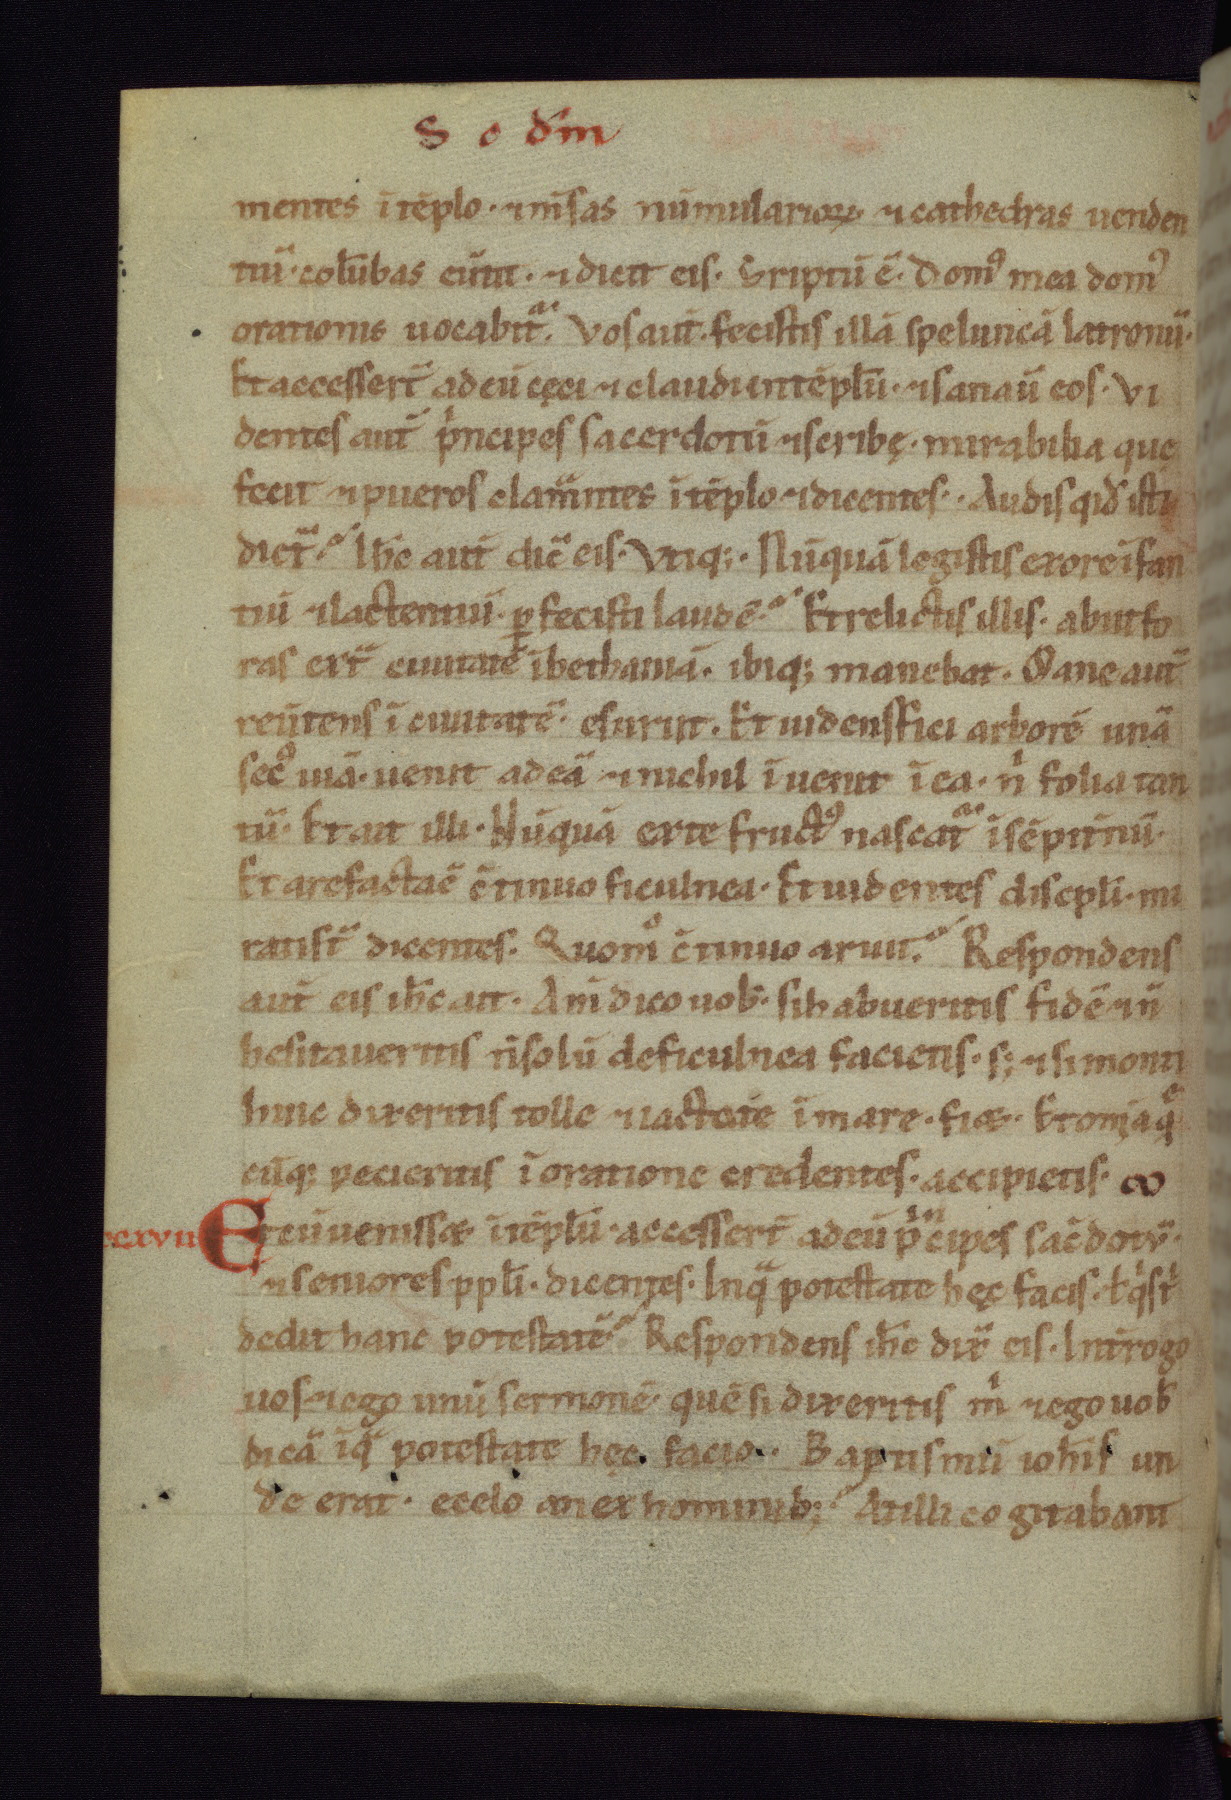 S c dm̄
mentes ī tēplo · ⁊ m̄sas nūmularioꝝ ⁊ cathedras uenden
tiū · colūbas eūtit · ⁊ dicit eis · Scriptū ē · Domꝰ mea domꝰ
orationis uocabit᷑ · Vos aut̄ · fecistis illā speluncā latronū ·
Et accesserт̄ ad eū cęci ⁊ claudi in tēplū · ⁊ sanaū eos · Vi
dentes aut̄ p̄ncipes sacerdotū ⁊ scribę · mirabilia que
fecit ⁊ pueros clamantes ī tēplo ⁊ dicentes · Audis qid isti
dicт̄ · Ihc̄ aut̄ dic̄ eis · Vtiq; · Nūquā legistis ex ore ifan
tiū ⁊ lactentiū · ꝑfecisti laudē · Et relictis illis · abiit fo
ras extͣ ciuitatē ī bethaniā · ibiq; manebat · Mane aut̄
reūtens ī ciuitatē · esuriit · Et uidens fici arborē unā
secꝰ uiā · uenit ad eā ⁊ nichil īuenit ī ea · n̄ folia tan
tū · Et ait illi · Nūquā ex te fructꝰ nascat᷑ ī sēpit̄nū ·
Et arefacta ē c̄tinuo ficulnea · Et uidentes discipl̄i · mi
rati sт̄ dicentes · Quomͦ c̄tinuo aruit · Respondens
aut̄ eis ihc̄ ait · Am̄ dico uob̄ · si habueritis fidē ⁊ n̄
hesitaueritis n̄ solū de ficulnea facietis · s; ⁊ si monti
huic dixeritis tolle ⁊ iacta te ī mare · fiet · Et om̄ia q̄
cūq; pecieritis ī oratione credentes · accipietis ·
ccxvii Et cū uenisset ī tēplū · accesserт̄ ad eū p̄ncipes sac̄dotū ·
⁊ seniores ppl̄i · dicentes · In qͣ potestate hęc facis · ł qͥs tͥ
dedit hanc potestatē · Respondens ihc̄ dix̄ eis · Int̄rogo
uos ⁊ ego unū sermonē · quē si dixeritis mͥ ⁊ ego uob̄
dicā ī qͣ potestate hęc facio · Baptismū ioh̄is un
de erat · e celo an ex hominib; · At illi cogitabant